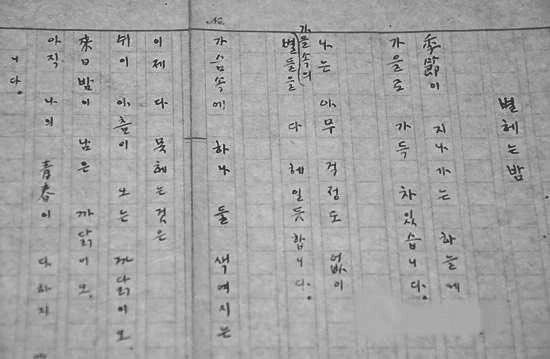 No.
별헤는밤
季節이 지나가는 하늘에
가을로 가득 차있습니다.
나는 아무 걱정도 없이
가을속의 별들을 다 헤일듯합니다.
가슴속에 하나 둘 색여지는
이제 다 못헤는것은
쉬이 아츰이 오는 까닭이오,
來日밤이 남은 까닭이오,
아직 나의 靑春이 다하지
니다.